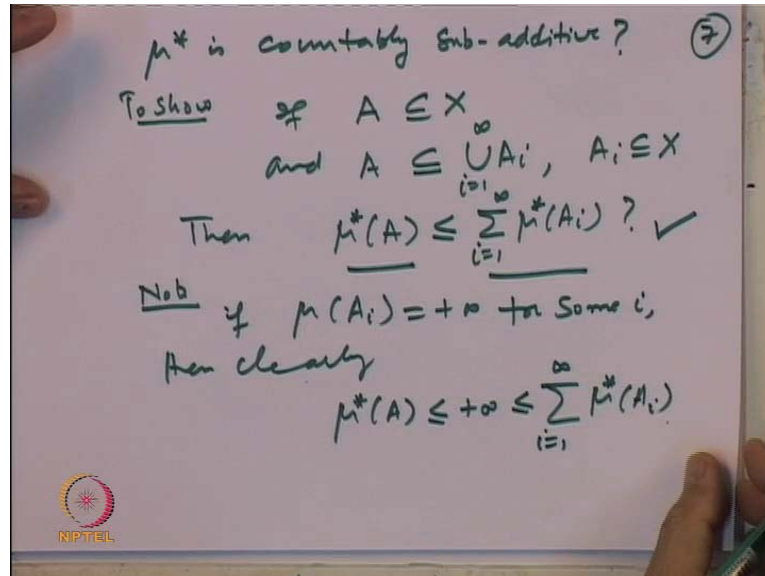 μ* is countably sub-additive? ⑦
To show if A ⊆ X
and A ⊆ ⋃_{i=1}^{∞} A_i, A_i ⊆ X
Then μ*(A) ≤ ∑_{i=1}^{∞} μ*(A_i) ? ✓
Note if μ(A_i) = +∞ for some i,
then clearly
μ*(A) ≤ +∞ ≤ ∑_{i=1}^{∞} μ*(A_i)
NPTEL